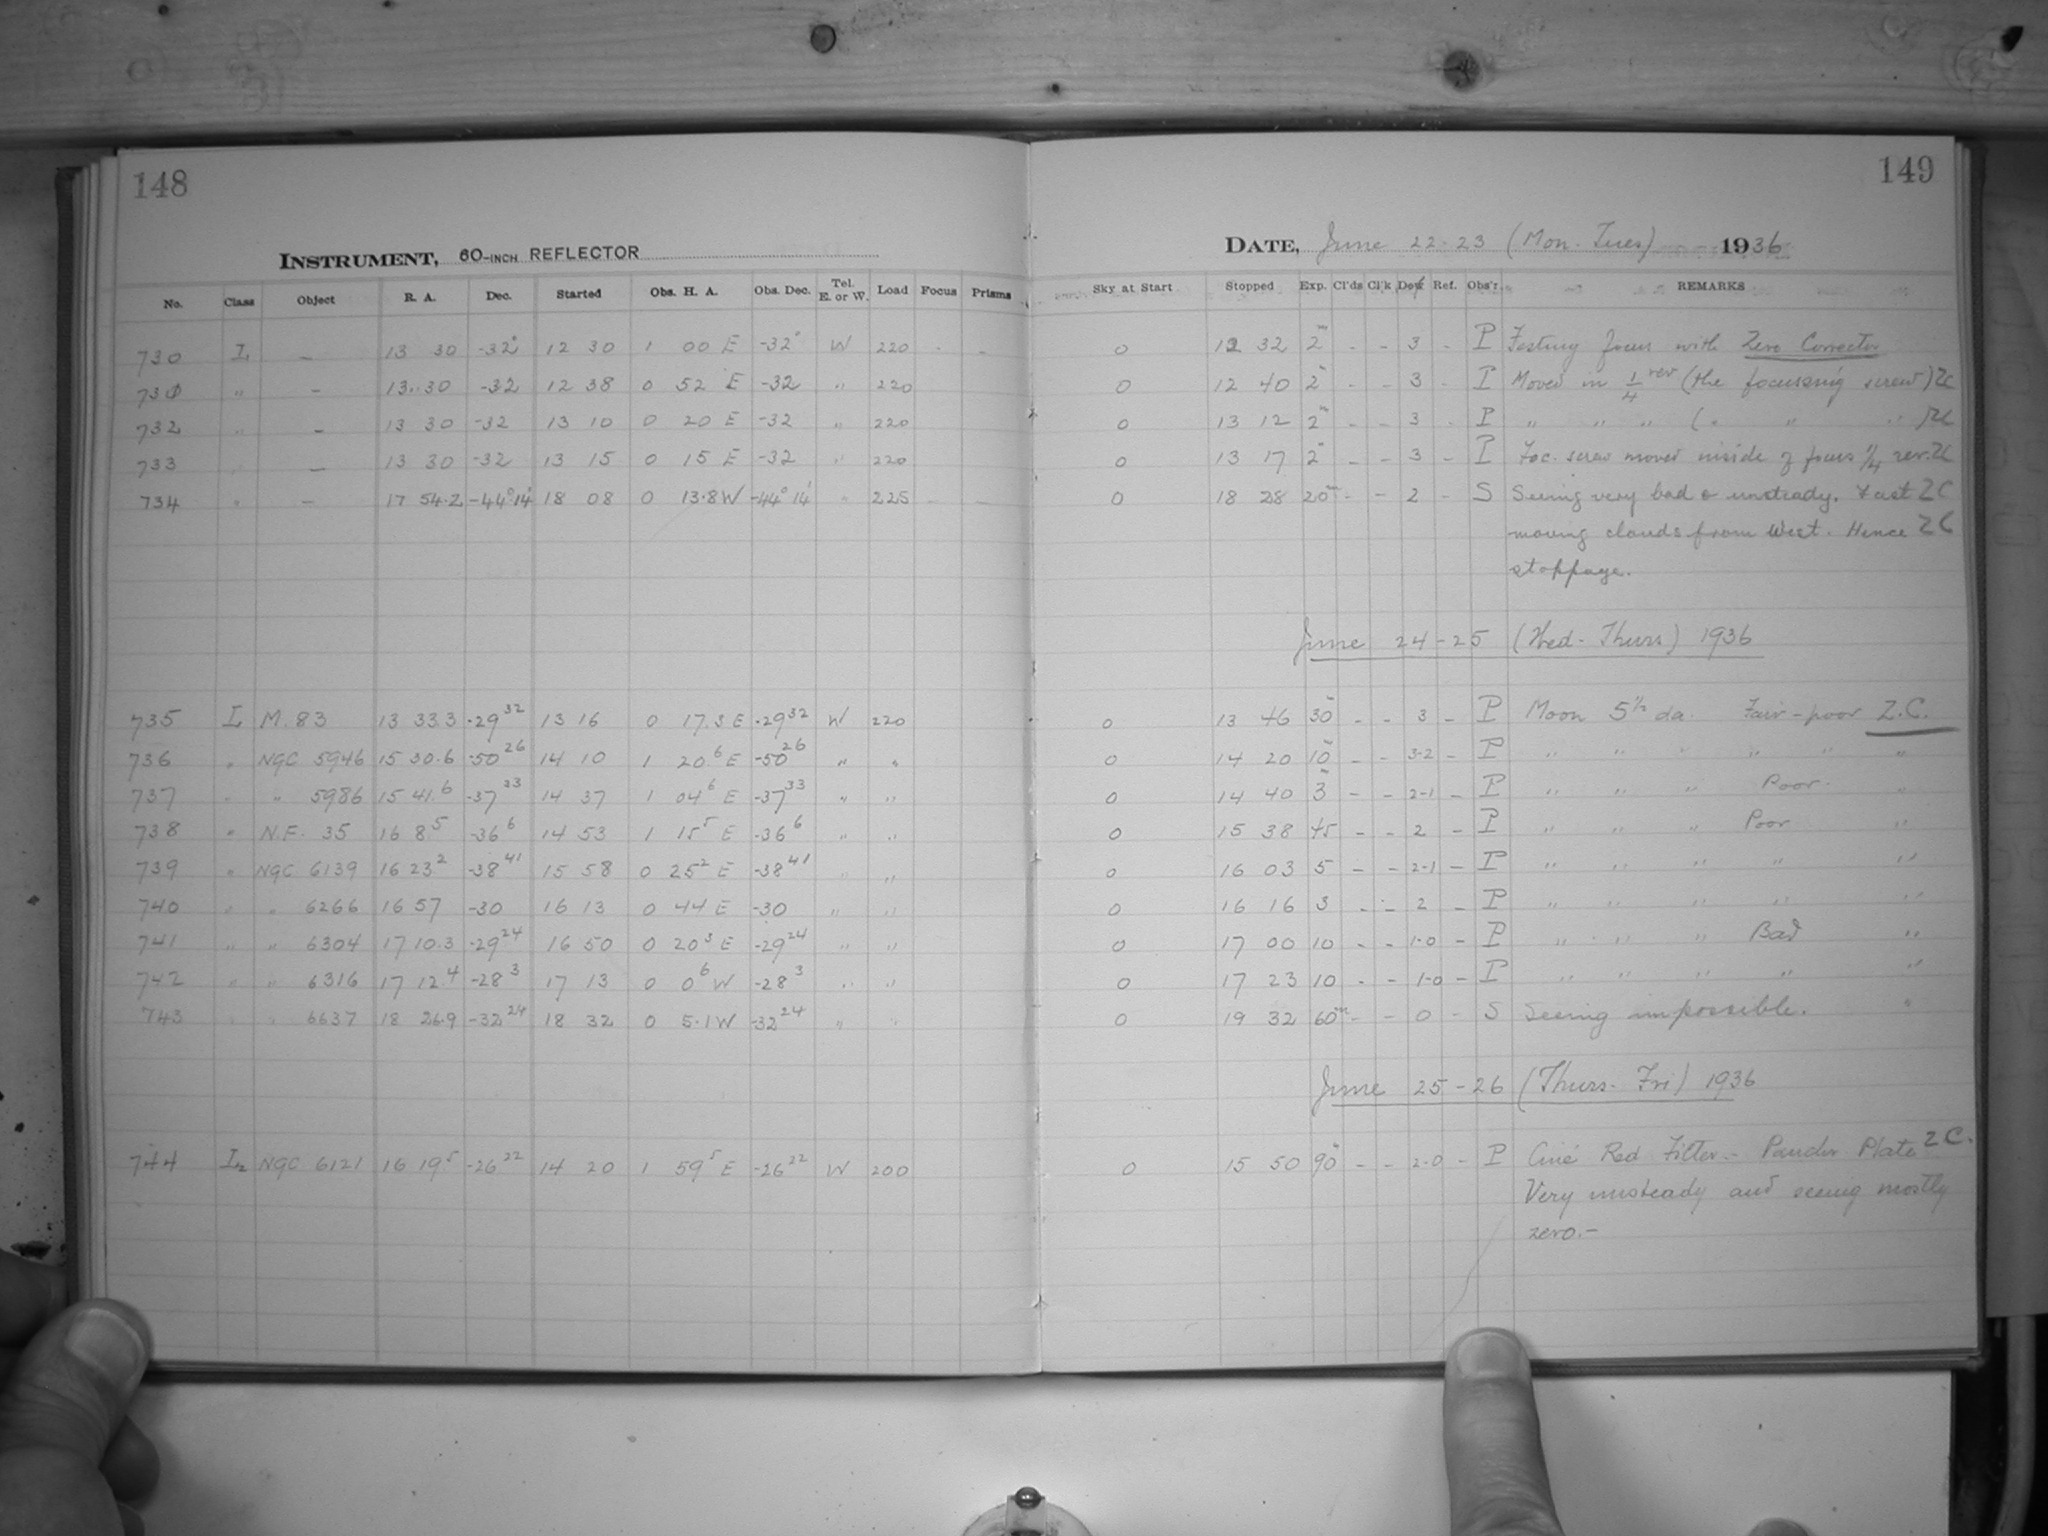 148
149
INSTRUMENT, 60-INCH REFLECTOR
DATE, June 22-23 (Mon. Tues) 1936
No. Class Object R. A. Dec. Started Obs. H. A. Obs. Dec. Tel. E. or W. Load Focus Prisms Sky at Start Stopped Exp. Cl'ds Cl'k Def Ref. Obs'r. REMARKS
730 I, – 13 30 -32° 12 30 1 00 E -32° W 220 - - 0 12 32 2m - - 3 - P Testing focus with Zero Corrector
731 " – 13 30 -32 12 38 0 52 E -32 " 220 0 12 40 2 - - 3 - P Moved in 1/4 rev (the focussing screw) ZC
732 " – 13 30 -32 13 10 0 20 E -32 " 220 0 13 12 2m - - 3 - P " " " ( " " " ) ZC
733 " – 13 30 -32 13 15 0 15 E -32 " 220 0 13 17 2 - - 3 - P Foc. screw moved inside of focus 1/4 rev. ZC
734 " – 17 54.2 -44° 14' 18 08 0 13.8 W -44° 14' " 225 - - 0 18 28 20m - - 2 - S Seeing very bad & unsteady. Fast ZC
moving clouds from West. Hence ZC
stoppage.
June 24-25 (Wed-Thurs) 1936
735 I, M. 83 13 33.3 -29 32 13 16 0 17.3 E -29 32 W 220 0 13 46 30 - - 3 - P Moon 5 1/2 da. Fair-poor Z.C.
736 " NGC 5946 15 30.6 -50 26 14 10 1 20 6 E -50 26 " " 0 14 20 10 - - 3-2 - P " " " " " "
737 " " 5986 15 41.6 -37 33 14 37 1 04 6 E -37 33 " " 0 14 40 3 - - 2-1 - P " " " Poor. "
738 " N.F. 35 16 8 5 -36 6 14 53 1 15 5 E -36 6 " " 0 15 38 45 - - 2 - P " " " Poor "
739 " NGC 6139 16 23 2 -38 41 15 58 0 25 2 E -38 41 " " 0 16 03 5 - - 2-1 - P " " " " "
740 " " 6266 16 57 -30 16 13 0 44 E -30 " " 0 16 16 3 - - 2 - P " " " " "
741 " " 6304 17 10.3 -29 24 16 50 0 20 3 E -29 24 " " 0 17 00 10 - - 1-0 - P " " " Bad "
742 " " 6316 17 12.4 -28 3 17 13 0 0 6 W -28 3 " " 0 17 23 10 - - 1-0 - P " " " " "
743 " " 6637 18 26.9 -32 24 18 32 0 5.1 W -32 24 " " 0 19 32 60m - - 0 - S Seeing impossible. "
June 25-26 (Thurs-Fri) 1936
744 I2 NGC 6121 16 19 5 -26 22 14 20 1 59 5 E -26 22 W 200 0 15 50 90 - - 2-0 - P Ciné Red Filter - Plate ZC.
Very unsteady and seeing mostly
zero.-